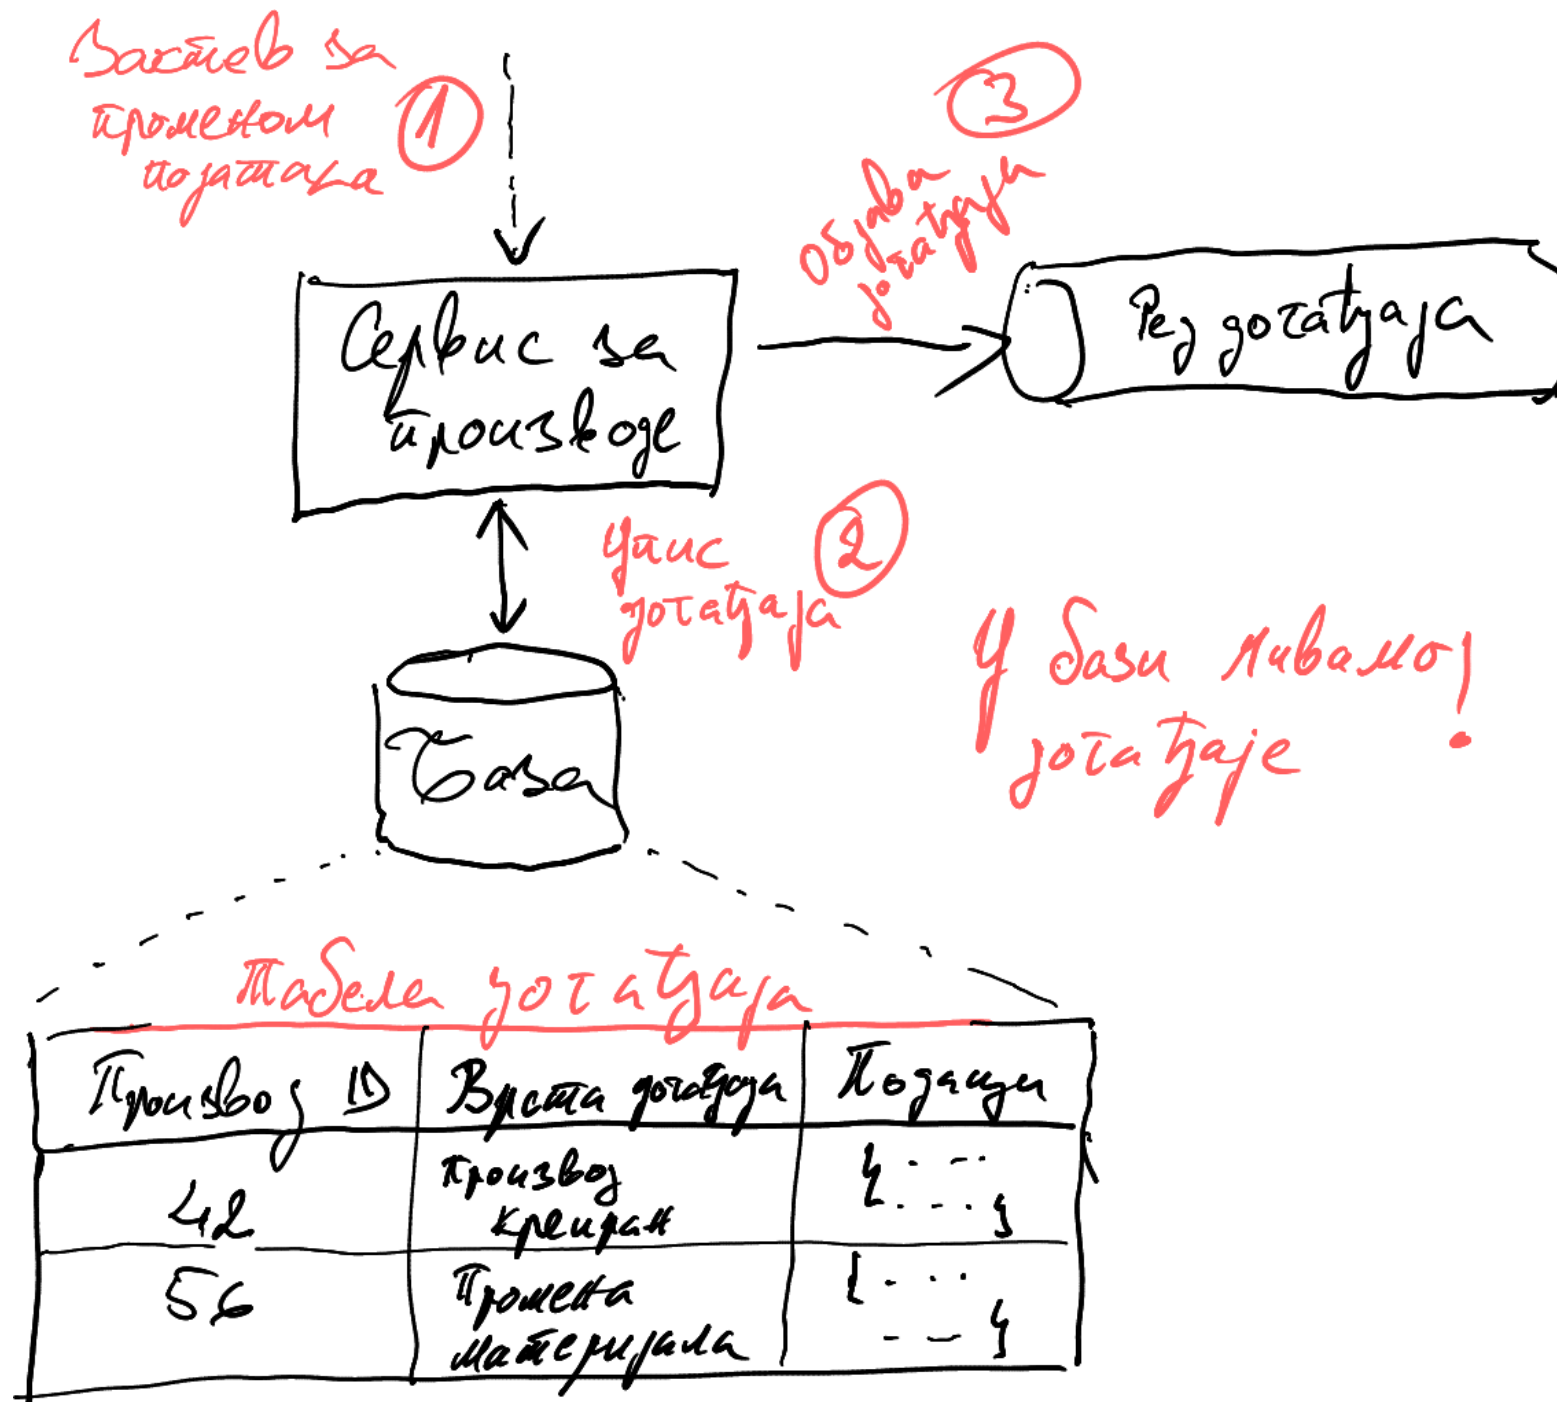 Захтев за
променом
података
1
3
Објава
догађаја
Сервис за
производе
Ред догађаја
Упис
догађаја
2
У бази чувамо
догађаје!
База
Табела догађаја
Производ ID
Врста догађаја
Подаци
42
Производ
креиран
{ . - -
. . - . }
56
Промена
материјала
{ - . .
- - }